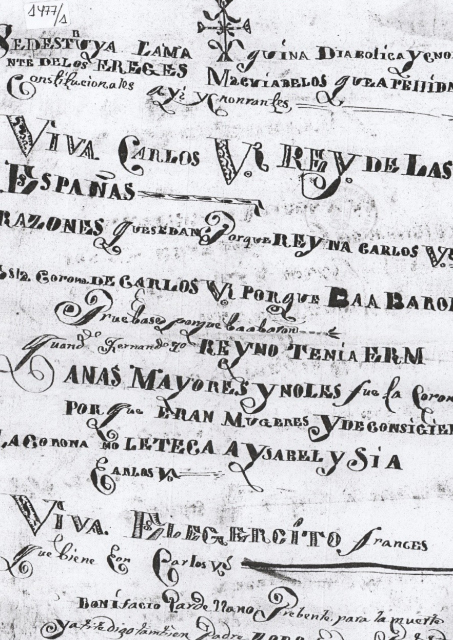 1477/1
SEDESTRUYA LAMA QUINA DIABOLICA Y ENO
NTE DE LOS EREGES MAQUIABELOS QUE APENIDA
Constitucionales ayi y Ynorrantes
VIVA CARLOS V. REY. DE LAS
ESPAÑAS
RAZONES QUESEDAN Porque REYNA CARLOS V
Esta Corona DE CARLOS V. PORQUE BAABARON
Pruebase porque baabaron
Quando Fernando 7o REYNO TENIA ERM
ANAS MAYORES Y NOLES fue la Coron
POR que ERAN MUGERES Y DE CONSIGIEN
LA CORONA NO LE TECA A YSABEL Y SIA
CARLOS V.
VIVA. ELEGERCITO frances
Que biene Con Carlos V
BONIFACIO Pardellano Prebente para la muerte
Ya te digo tambien Padre